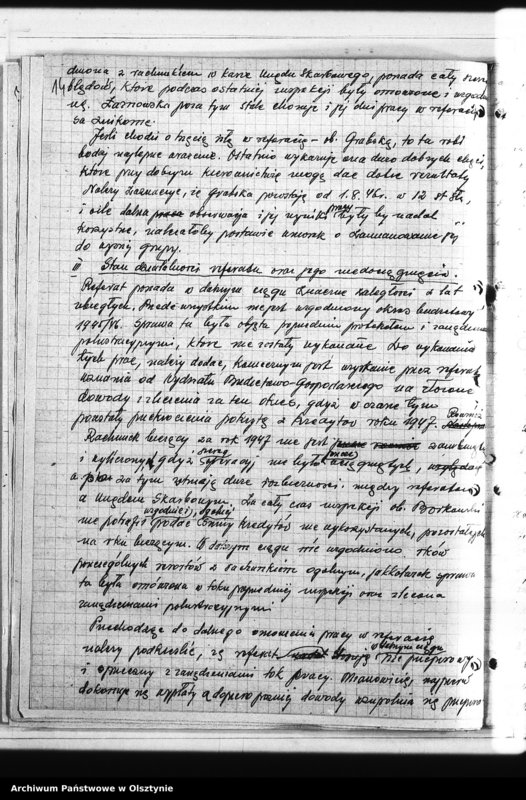 z rachunkiem w kasie Urzędu Skarbowego, ponadto cały szereg
14 błędów, które podczas ostatniej inspekcji były omówione i
się. poza tym stale choruje i jej dni pracy w referacie
są znikome.
Jeśli chodzi o trzecią siłę w referacie – ob. Grabską, to ta robi
bodaj najlepsze wrażenie. Ostatnio wykazuje ona dużo dobrych chęci,
które przy dobrym kierownictwie mogą dać dobre rezultaty
Należy zaznaczyć, że Grabska pracuje od 1.8.46r. w 12 st. sł.,
i o ile dalsza obserwacja i jej wyniki pracy były by nadal
korzystne, należałoby postawić wniosek o zaawansowanie jej
do wyższej grupy.
II Stan działalności referatu oraz jego niedociągnięcia.
Referat posiada w dalszym ciągu znaczne zaległości z lat
ubiegłych. Przede wszystkim nie jest uzgodniony okres budżetowy
1945/46. Sprawa ta była objęta poprzednim protokołem i zarządzeniami
polustracyjnymi, które nie zostały wykonane. Do wykonania
tych prac, należy dodać, koniecznym jest uzyskanie przez referat
uznania od Wydziału Budżetowo-Gospodarczego na złożone
dowody i zlecenia za ten okres, gdyż w czasie tym
pozostały przekroczenia pokryte z kredytów roku 1947.
Również
Rachunek bieżący za rok 1947 nie jest zamknięty
i gdyż szereg operacji nie było
a poza tym istnieją duże rozbieżności między referatem
a Urzędem Skarbowym. Za cały czas inspekcji ob. Borkowski
nie potrafił uzgodnić, ogólnej sumy kredytów nie wykorzystanych, pozostałych
na rok bieżący. W dalszym ciągu nie uzgodniono rków
poszczególnych resortów z rachunkiem ogólnym, jakkolwiek sprawa
ta była omówiona w toku poprzedniej inspekcji oraz zlecona
zarządzeniami polustracyjnymi
Przechodząc do dalszego omówienia pracy w referacie
należy podkreślić, że referat stosuje w dalszym ciągu nie przepisowy
i sprzeczny z zarządzeniami tok pracy. Mianowicie, najpierw
dokonuje się wypłaty a dopiero później dowody uzupełnia się
Archiwum Państwowe w Olsztynie